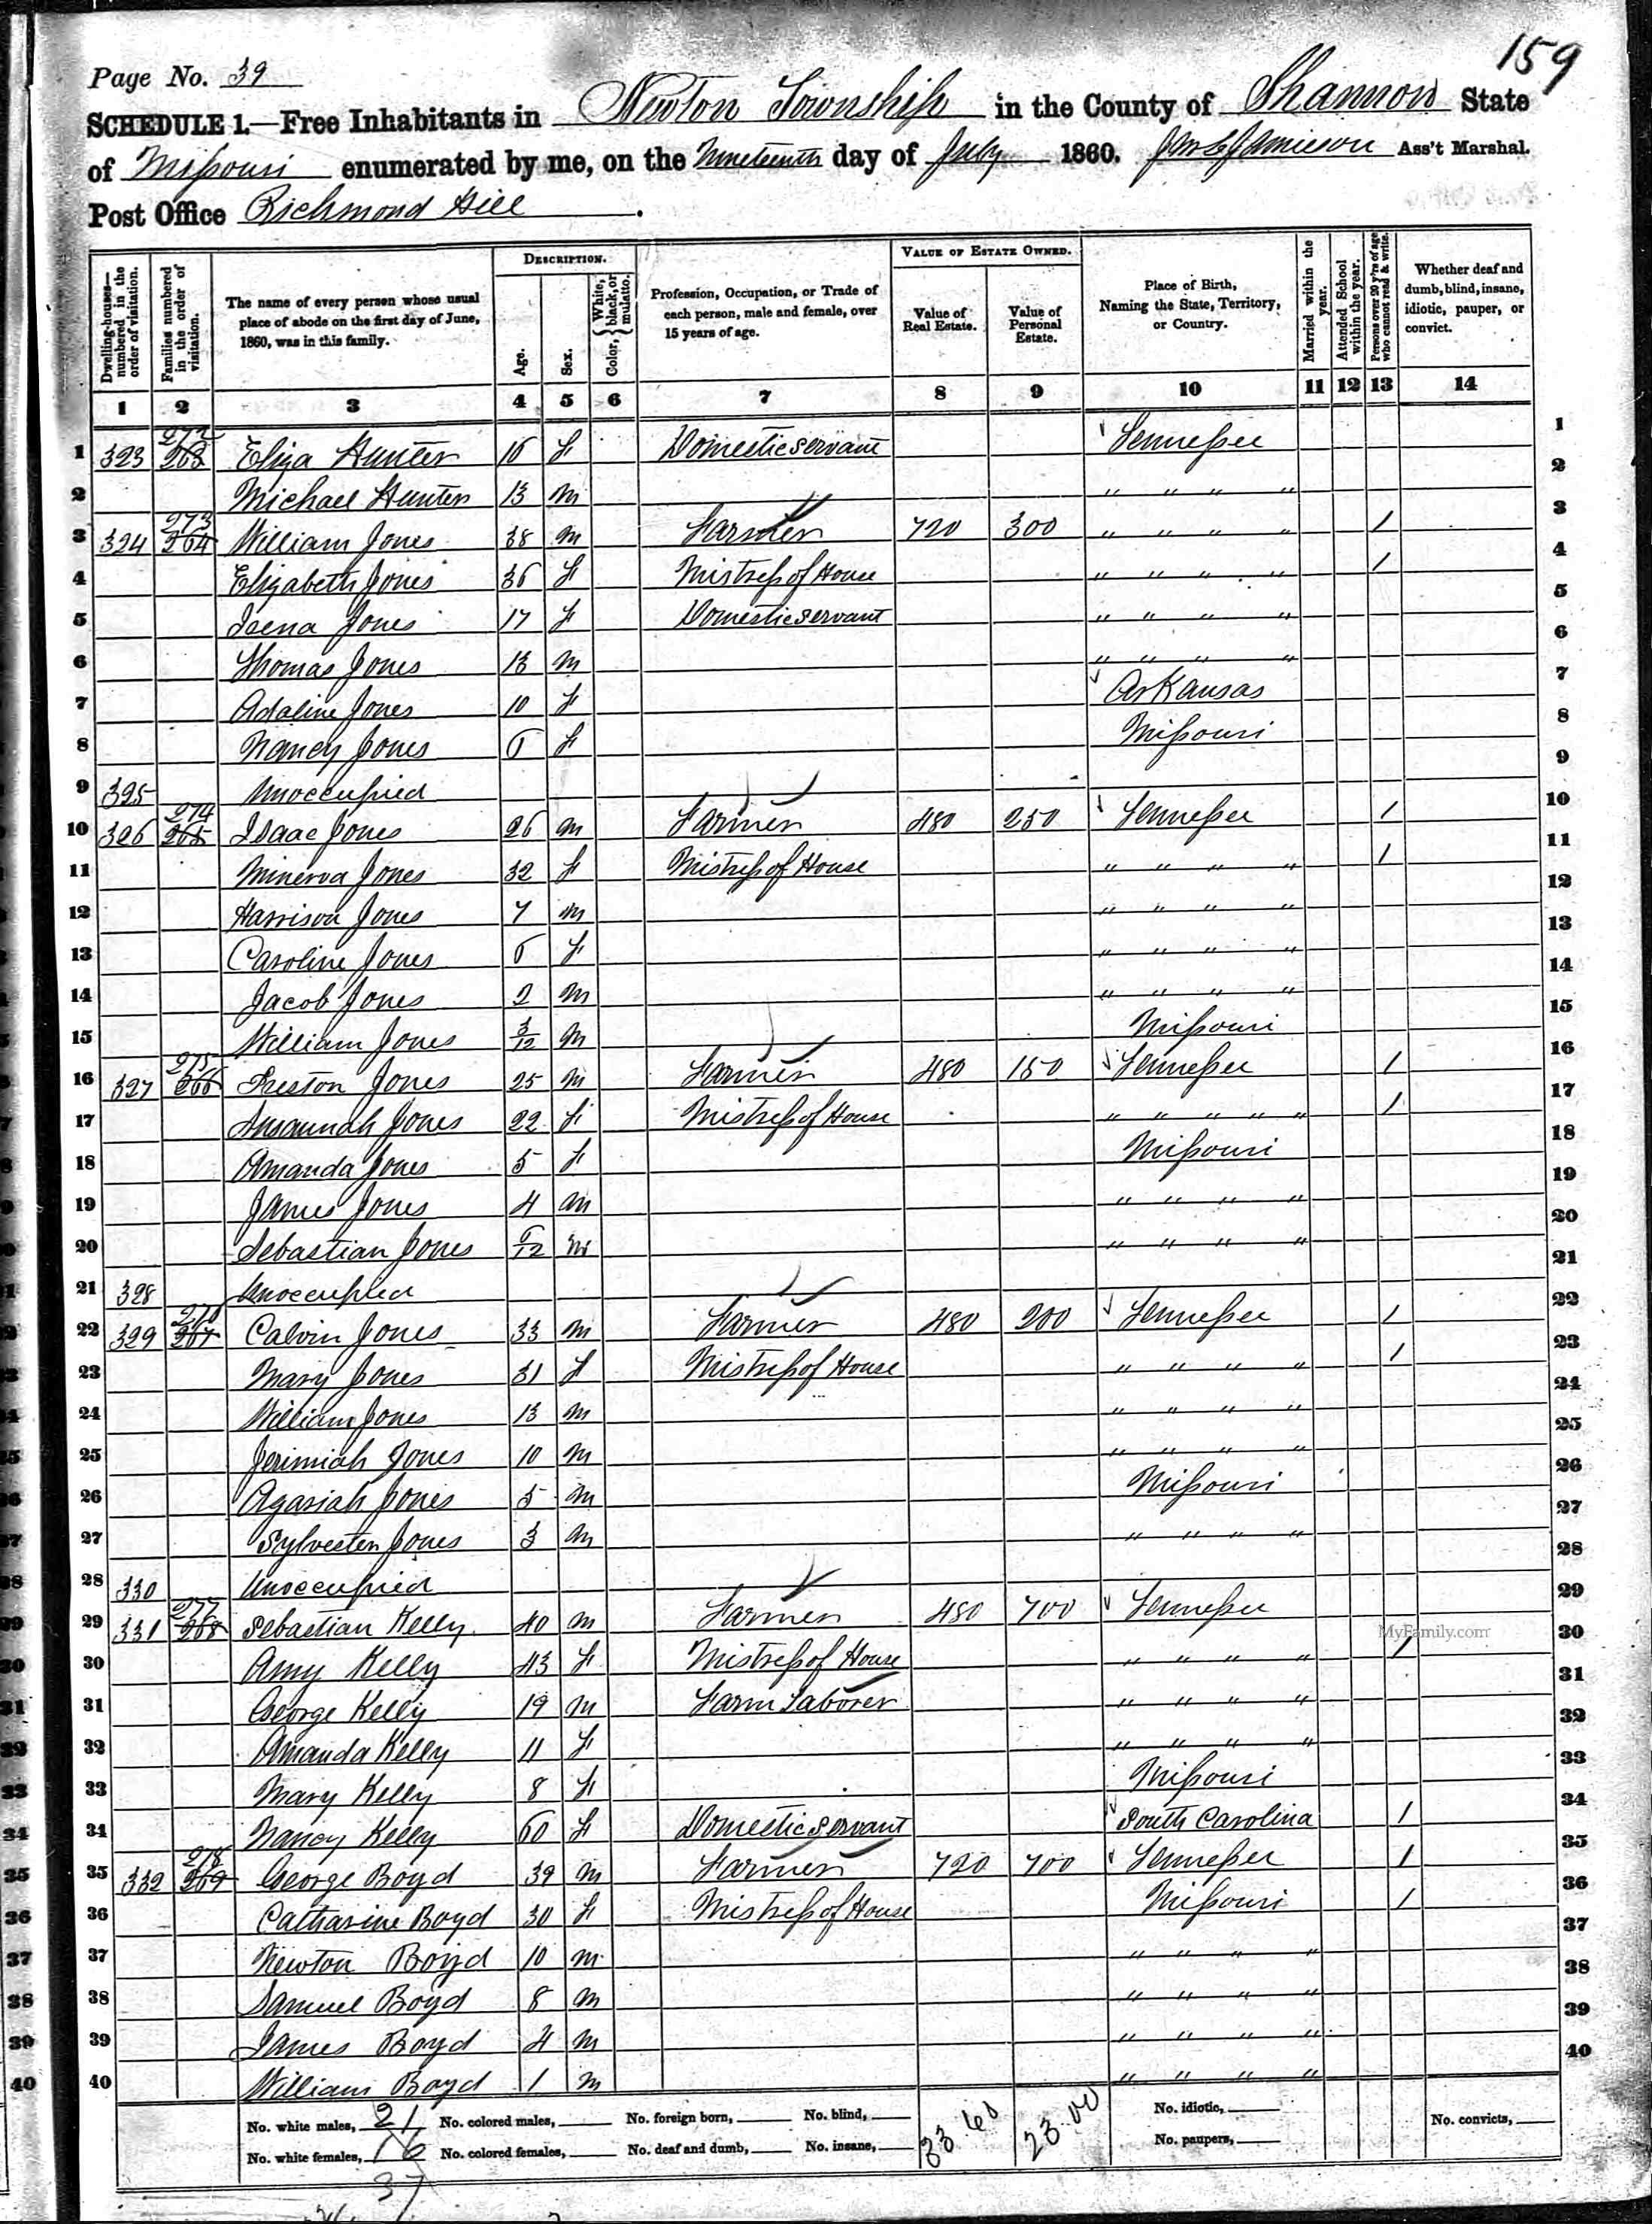 159
Page No. 39
SCHEDULE 1.—Free Inhabitants in Newton Township in the County of Shannon State
of Missouri enumerated by me, on the Nineteenth day of July 1860. Jamieson Ass't Marshal.
Post Office Richmond Hill.
Dwelling-houses—numbered in the order of visitation.
Families numbered in the order of visitation.
The name of every person whose usual place of abode on the first day of June, 1860, was in this family.
DESCRIPTION.
Age.
Sex.
Color, { White, black, or mulatto.
Profession, Occupation, or Trade of each person, male and female, over 15 years of age.
VALUE OF ESTATE OWNED.
Value of Real Estate.
Value of Personal Estate.
Place of Birth, Naming the State, Territory, or Country.
Married within the year.
Attended School within the year.
Persons over 20 y'rs of age who cannot read & write.
Whether deaf and dumb, blind, insane, idiotic, pauper, or convict.
1 2 3 4 5 6 7 8 9 10 11 12 13 14
1 323 272 263 Eliza Hunter 16 f Domestic servant Tennessee 1
2 Michael Hunter 13 m " " " " 2
3 324 273 264 William Jones 38 m Farmer 720 300 " " " " / 3
4 Elizabeth Jones 36 f Mistress of House " " " " / 4
5 Jones 17 f Domestic servant " " " " 5
6 Thomas Jones 13 m " " " " 6
7 Adaline Jones 10 f Arkansas 7
8 Nancy Jones 6 f Missouri 8
9 325 Unoccupied 9
10 326 274 265 Isaac Jones 26 m Farmer 480 250 Tennessee / 10
11 Minerva Jones 32 f Mistress of House " " " " / 11
12 Harrison Jones 7 m " " " " 12
13 Caroline Jones 6 f " " " " 13
14 Jacob Jones 2 m " " " " 14
15 William Jones 3/12 m Missouri 15
16 327 275 266 Preston Jones 25 m Farmer 480 150 Tennessee / 16
17 Susannah Jones 22 f Mistress of House " " " " " / 17
18 Amanda Jones 5 f Missouri 18
19 James Jones 4 m " " " " 19
20 Sebastian Jones 6/12 m " " " " 20
21 328 Unoccupied 21
22 329 276 267 Calvin Jones 33 m Farmer 480 200 Tennessee / 22
23 Mary Jones 31 f Mistress of House " " " " / 23
24 William Jones 13 m " " " " 24
25 Jerimiah Jones 10 m " " " " 25
26 Agariah Jones 5 m Missouri 26
27 Sylvester Jones 3 m " " " " 27
28 330 Unoccupied 28
29 331 277 268 Sebastian Kelly 40 m Farmer 480 700 Tennessee 29
MyFamily.com
30 Amy Kelly 43 f Mistress of House " " " " / 30
31 George Kelly 19 m Farm Laborer " " " " 31
32 Amanda Kelly 11 f " " " " 32
33 Mary Kelly 8 f Missouri 33
34 Nancy Kelly 60 f Domestic servant South Carolina / 34
35 332 278 269 George Boyd 39 m Farmer 720 700 Tennessee / 35
36 Catharine Boyd 30 f Mistress of House Missouri / 36
37 Newton Boyd 10 m " " " " 37
38 Samuel Boyd 8 m " " " " 38
39 James Boyd 4 m " " " " 39
40 William Boyd 1 m " " " " 40
No. white males, 21 No. colored males, No. foreign born, No. blind, 33 60 23.00 No. idiotic, No. convicts,
No. white females, 16 No. colored females, No. deaf and dumb, No. insane, No. paupers,
37